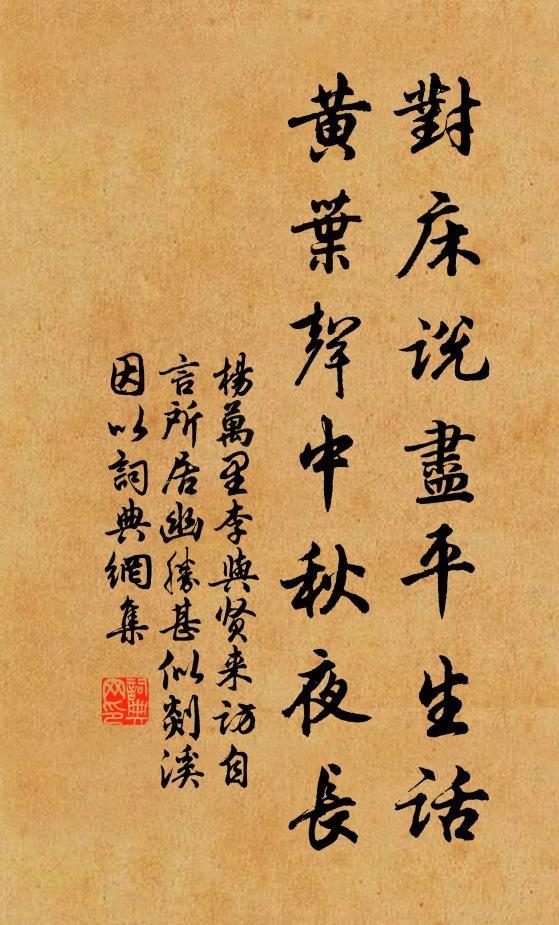 對床説盡平生話
黄葉聲中秋夜長
楊萬里李與賢来訪自
言所居幽勝甚似剡溪
因以詞典網集
詞典
网印